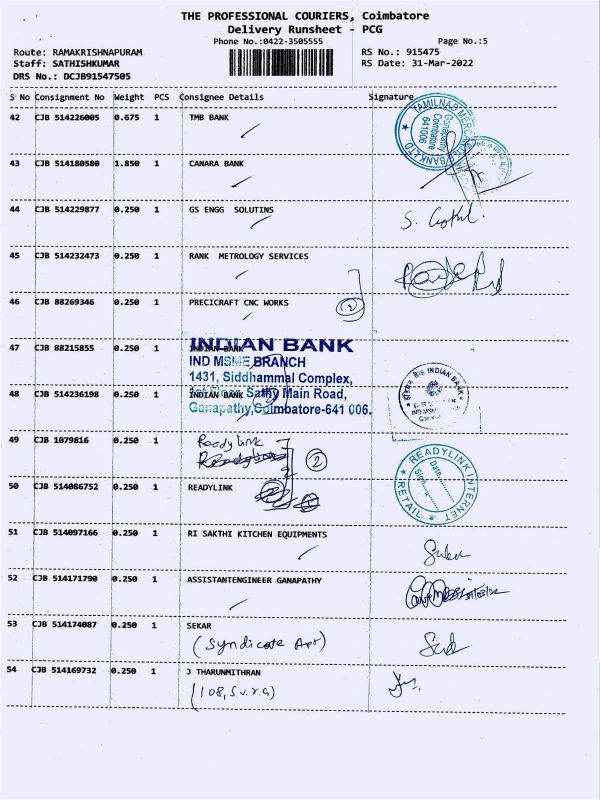 THE PROFESSIONAL COURIERS, Coimbatore
Delivery Runsheet - PCG
Phone No.:0422-3505555
Page No.:5
Route: RAMAKRISHNAPURAM
RS No.: 915475
Staff: SATHISHKUMAR
RS Date: 31-Mar-2022
DRS No.: DCJB91547505
S No Consignment No Weight PCS Consignee Details Signature
42 CJB 514226005 0.675 1 TMB BANK
TAMILNAD MERCANTILE BANK LTD.
Ganapathy
Coimbatore
641006
43 CJB 514180580 1.850 1 CANARA BANK
44 CJB 514229877 0.250 1 GS ENGG SOLUTINS
S. Gokul.
45 CJB 514232473 0.250 1 RANK METROLOGY SERVICES
46 CJB 88269346 0.250 1 PRECICRAFT CNC WORKS
2
47 CJB 88215855 0.250 1 INDIAN BANK
INDIAN BANK
IND MSME BRANCH
1431, Siddhammal Complex,
1st Floor, Sathy Main Road,
Ganapathy, Coimbatore-641 006.
48 CJB 514236198 0.250 1 INDIAN BANK
INDIAN BANK
IND MSM
49 CJB 1079816 0.250 1 Readylink
2
50 CJB 514086752 0.250 1 READYLINK
READYLINK INTERNET
RETAIL
Date
Sign
51 CJB 514097166 0.250 1 RI SAKTHI KITCHEN EQUIPMENTS
52 CJB 514171790 0.250 1 ASSISTANTENGINEER GANAPATHY
53 CJB 514174087 0.250 1 SEKAR
(Syndicate Apt)
54 CJB 514169732 0.250 1 J THARUNMITHRAN
(108, S.V.R.G)